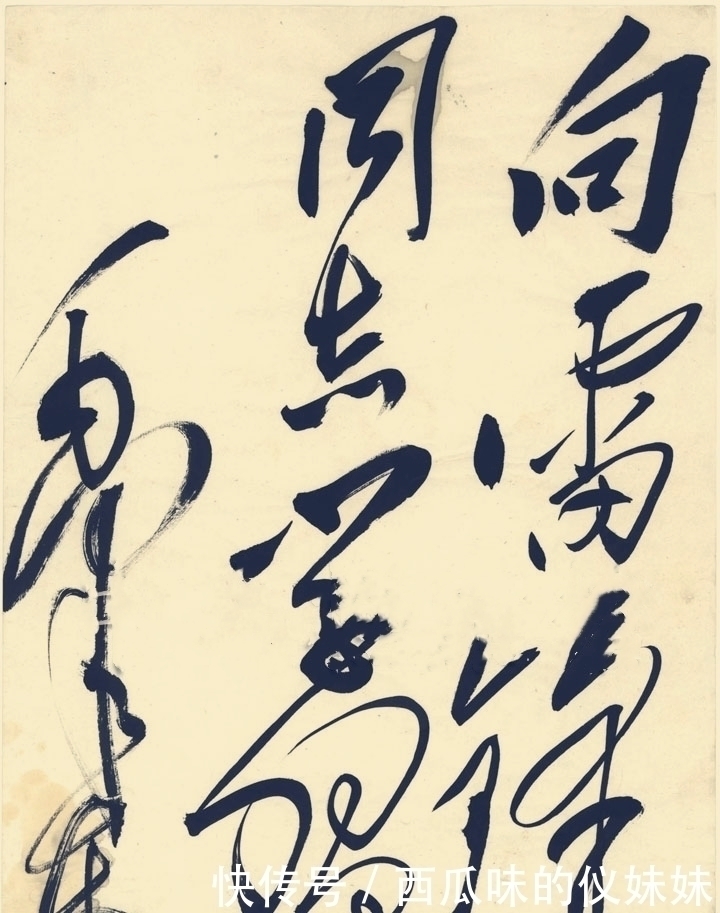 向雷锋
同志学习
毛泽东
快传号 / 西瓜味的仪妹妹